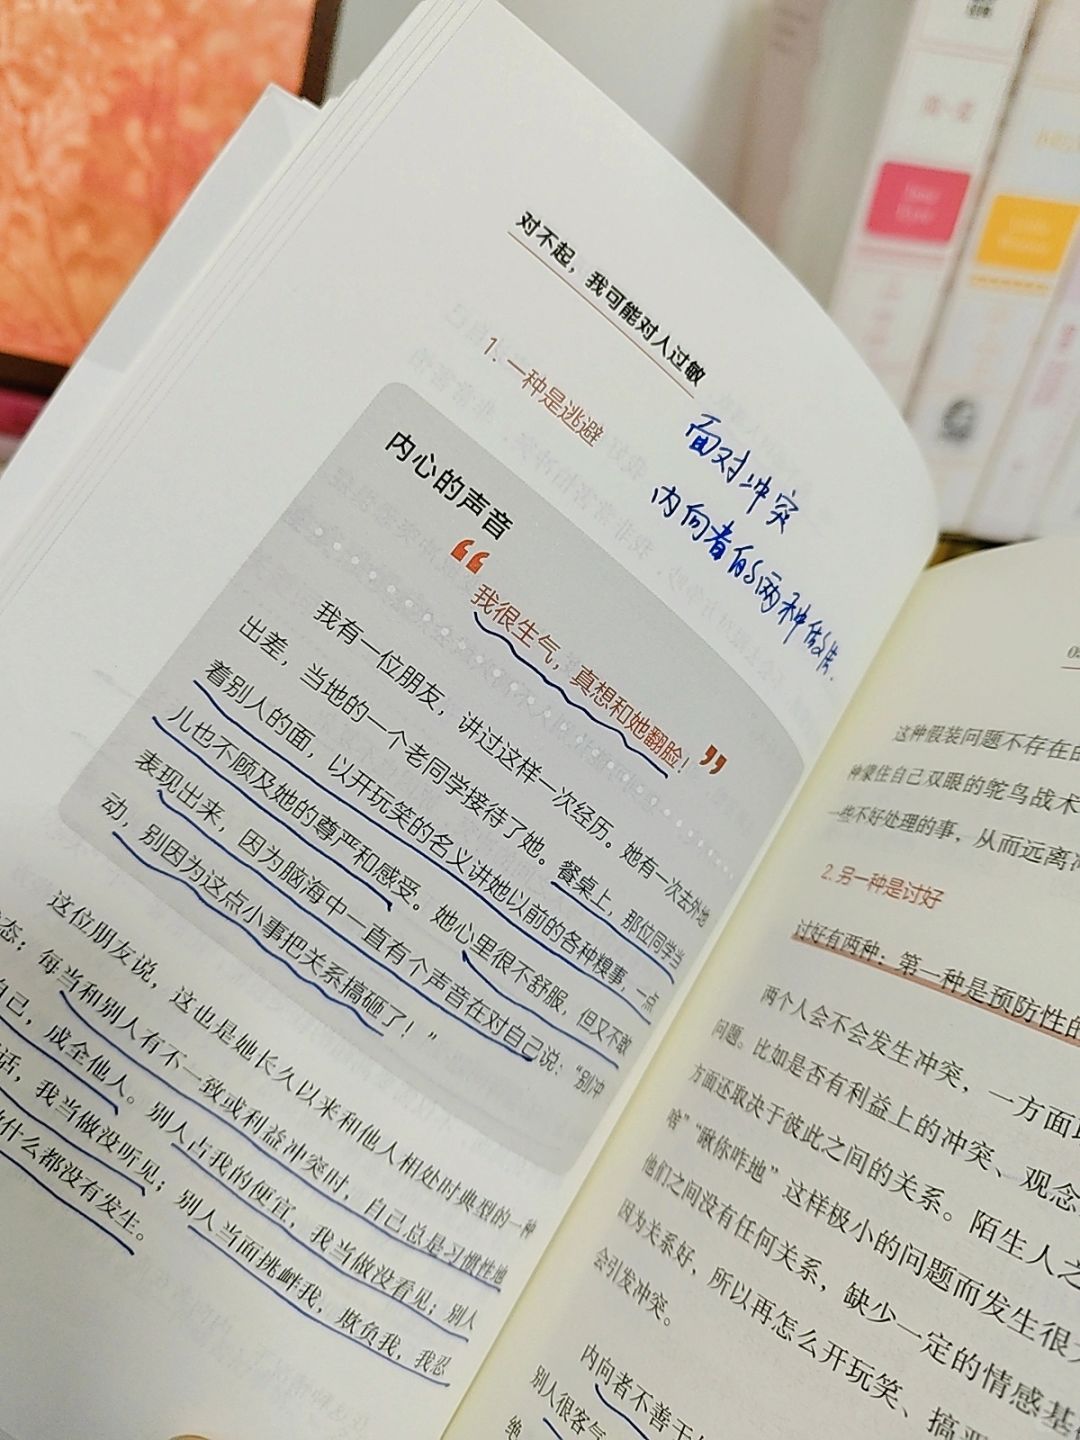 对不起，我可能对人过敏
面对冲突
内向者的两种做法.
1. 一种是逃避
内心的声音
“
我很生气，真想和她翻脸！
”
我有一位朋友，讲过这样一次经历。她有一次去外地
出差，当地的一个老同学接待了她。餐桌上，那位同学当
着别人的面，以开玩笑的名义讲她以前的各种糗事，一点
儿也不顾及她的尊严和感受。她心里很不舒服，但又不敢
表现出来，因为脑海中一直有个声音在对自己说：“别冲
动，别因为这点小事把关系搞砸了！”
这位朋友说，这也是她长久以来和他人相处时典型的一种
态；每当和别人有不一致或利益冲突时，自己总是习惯性地
自己，成全他人。别人占我的便宜，我当做没看见；别人
话，我当做没听见；别人当面挑衅我，欺负我，我忍
什么都没有发生。
这种假装问题不存在
种蒙住自己双眼的鸵鸟战术
些不好处理的事，从而远离
2. 另一种是讨好
讨好有两种：第一种是预防性的
两个人会不会发生冲突，一方面
问题。比如是否有利益上的冲突、观念
方面还取决于彼此之间的关系。陌生人之
啥”“瞅你咋地”这样极小的问题而发生很
他们之间没有任何关系，缺少一定的情感基
因为关系好，所以再怎么开玩笑、搞
会引发冲突。
内向者不善于
别人很客气
绝